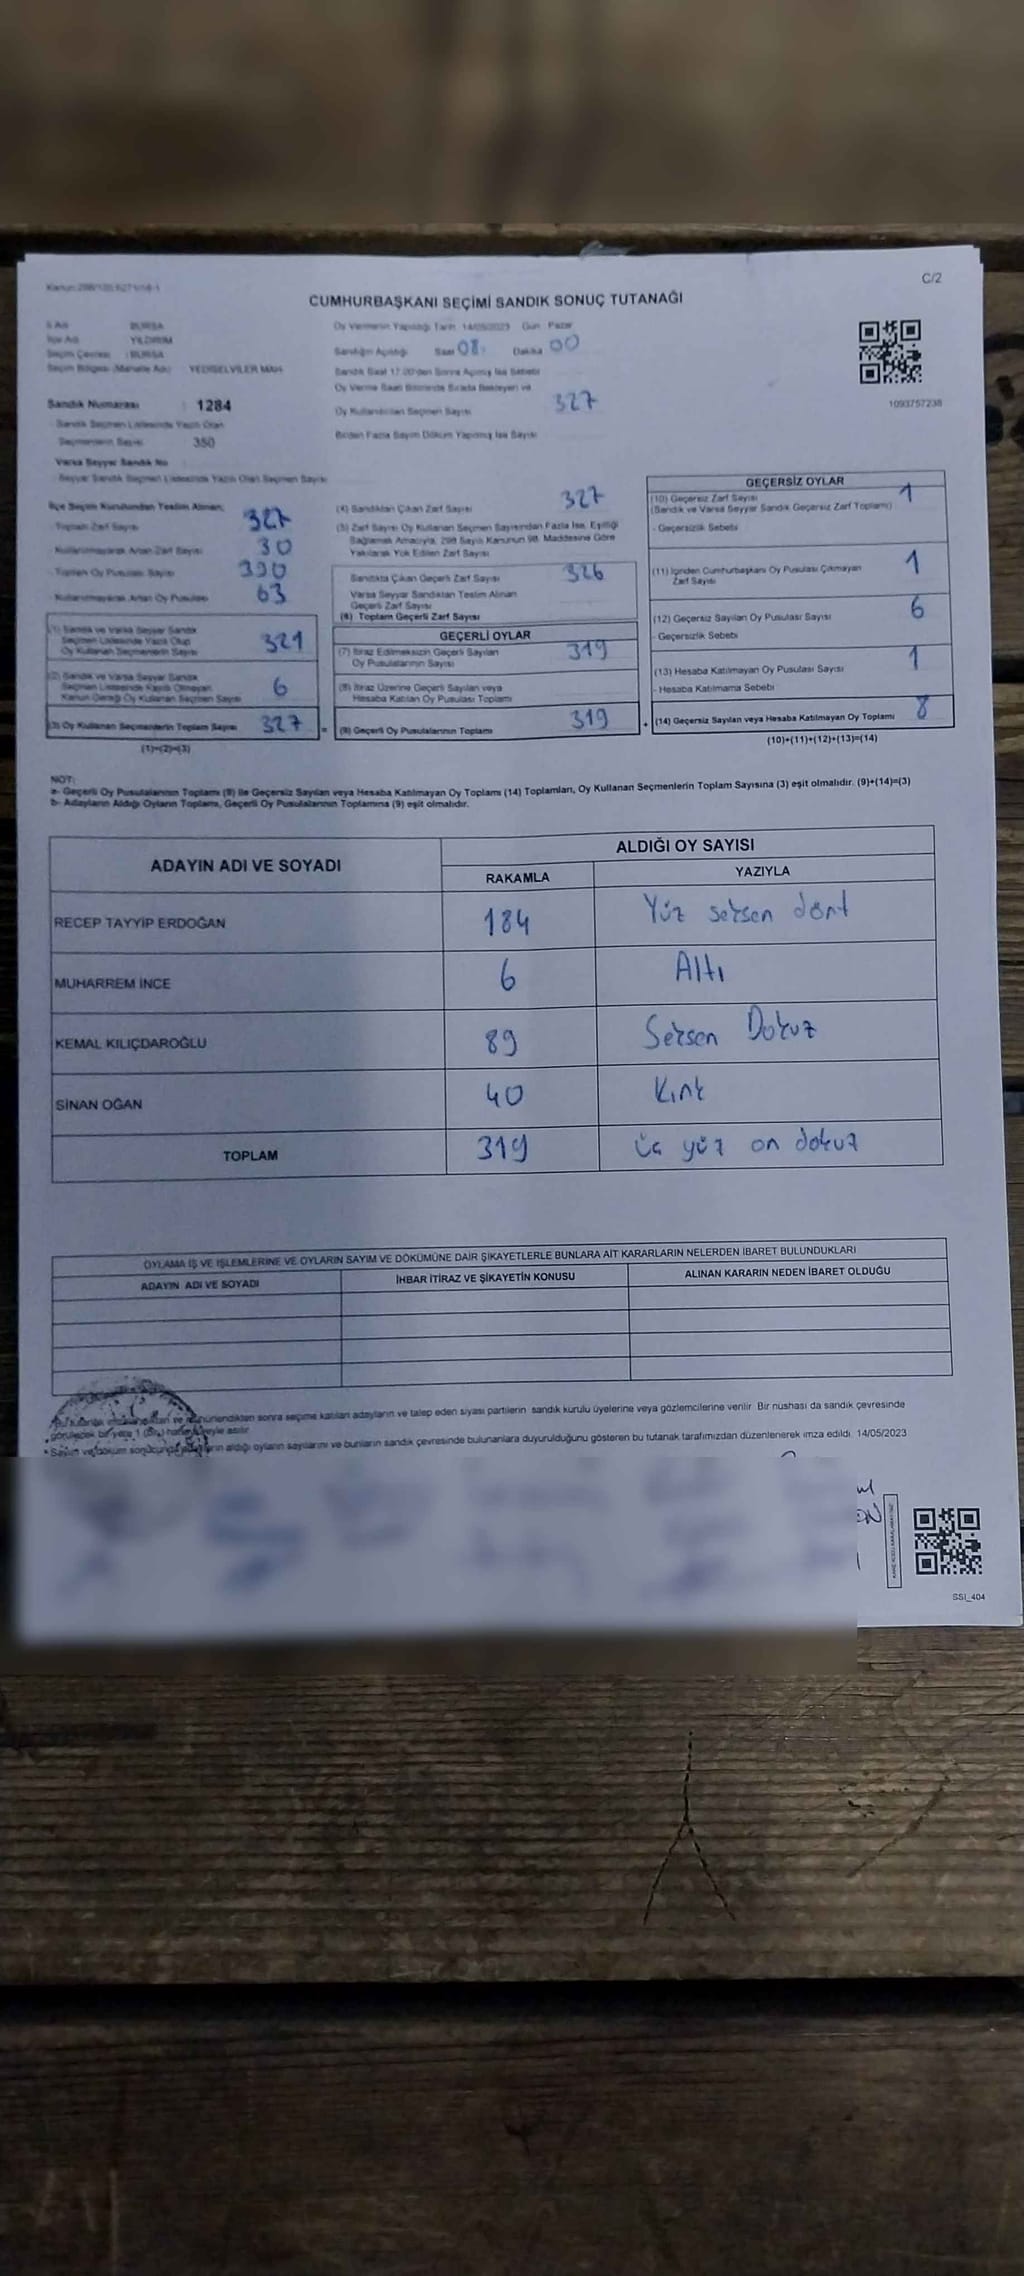 C/2
CUMHURBAŞKANI SEÇİMİ SANDIK SONUÇ TUTANAĞI
İl Adı BURSA
İlçe Adı YILDIRIM
Seçim Çevresi : BURSA
Seçim Bölgesi (Mahalle Adı) YEDİSELVİLER MAH.
Oy Vermenin Yapıldığı Tarih 14/05/2023 Gün: Pazar
Sandığın Açıldığı Saat 08: Dakika 00
Sandık Saat 17.00'den Sonra Açılmış İse Sebebi
Oy Verme Saati Bitiminde Sırada Bekleyen ve
Oy Kullandırılan Seçmen Sayısı 327
Birden Fazla Sayım Döküm Yapılmış İse Sayısı
1093757238
Sandık Numarası : 1284
Sandık Seçmen Listesinde Yazılı Olan
Seçmenlerin Sayısı 350
Varsa Seyyar Sandık No
Seyyar Sandık Seçmen Listesinde Yazılı Olan Seçmen Sayısı
İlçe Seçim Kurulundan Teslim Alınan;
Toplam Zarf Sayısı 327
Kullanılmayarak Artan Zarf Sayısı 30
Toplam Oy Pusulası Sayısı 390
Kullanılmayarak Artan Oy Pusulası 63
(1) Sandık ve Varsa Seyyar Sandık
Seçmen Listesinde Yazılı Olup
Oy Kullanan Seçmenlerin Sayısı 321
(2) Sandık ve Varsa Seyyar Sandık
Seçmen Listesinde Kayıtlı Olmayan
Kanun Gereği Oy Kullanan Seçmen Sayısı 6
(3) Oy Kullanan Seçmenlerin Toplam Sayısı 327 =
(1)+(2)=(3)
(4) Sandıktan Çıkan Zarf Sayısı 327
(5) Zarf Sayısı Oy Kullanan Seçmen Sayısından Fazla İse, Eşitliği
Sağlamak Amacıyla, 298 Sayılı Kanunun 98. Maddesine Göre
Yakılarak Yok Edilen Zarf Sayısı
Sandıkta Çıkan Geçerli Zarf Sayısı 326
Varsa Seyyar Sandıktan Teslim Alınan
Geçerli Zarf Sayısı
(6) Toplam Geçerli Zarf Sayısı
GEÇERLİ OYLAR
(7) İtiraz Edilmeksizin Geçerli Sayılan
Oy Pusulalarının Sayısı 319
(8) İtiraz Üzerine Geçerli Sayılan veya
Hesaba Katılan Oy Pusulası Toplamı
(9) Geçerli Oy Pusulalarının Toplamı 319 +
GEÇERSİZ OYLAR
(10) Geçersiz Zarf Sayısı 1
(Sandık ve Varsa Seyyar Sandık Geçersiz Zarf Toplamı)
- Geçersizlik Sebebi
(11) İçinden Cumhurbaşkanı Oy Pusulası Çıkmayan 1
Zarf Sayısı
(12) Geçersiz Sayılan Oy Pusulası Sayısı 6
- Geçersizlik Sebebi
(13) Hesaba Katılmayan Oy Pusulası Sayısı 1
- Hesaba Katılmama Sebebi
(14) Geçersiz Sayılan veya Hesaba Katılmayan Oy Toplamı 8
(10)+(11)+(12)+(13)=(14)
NOT:
a- Geçerli Oy Pusulalarının Toplamı (9) ile Geçersiz Sayılan veya Hesaba Katılmayan Oy Toplamı (14) Toplamları, Oy Kullanan Seçmenlerin Toplam Sayısına (3) eşit olmalıdır. (9)+(14)=(3)
b- Adayların Aldığı Oyların Toplamı, Geçerli Oy Pusulalarının Toplamına (9) eşit olmalıdır.
ADAYIN ADI VE SOYADI
ALDIĞI OY SAYISI
RAKAMLA YAZIYLA
RECEP TAYYİP ERDOĞAN 184 Yüz seksen dört
MUHARREM İNCE 6 Altı
KEMAL KILIÇDAROĞLU 89 Seksen Dokuz
SİNAN OĞAN 40 Kırk
TOPLAM 319 üç yüz on dokuz
OYLAMA İŞ VE İŞLEMLERİNE VE OYLARIN SAYIM VE DÖKÜMÜNE DAİR ŞİKAYETLERLE BUNLARA AİT KARARLARIN NELERDEN İBARET BULUNDUKLARI
ADAYIN ADI VE SOYADI İHBAR İTİRAZ VE ŞİKAYETİN KONUSU ALINAN KARARIN NEDEN İBARET OLDUĞU
sonra seçime katılan adayların ve talep eden siyasi partilerin sandık kurulu üyelerine veya gözlemcilerine verilir. Bir nüshası da sandık çevresinde
görülecek bir yere 1 (Bir) asılır.
* Sayım ve döküm sonucunda aldığı oyların sayılarını ve bunların sandık çevresinde bulunanlara duyurulduğunu gösteren bu tutanak tarafımızdan düzenlenerek imza edildi. 14/05/2023
SSI_404